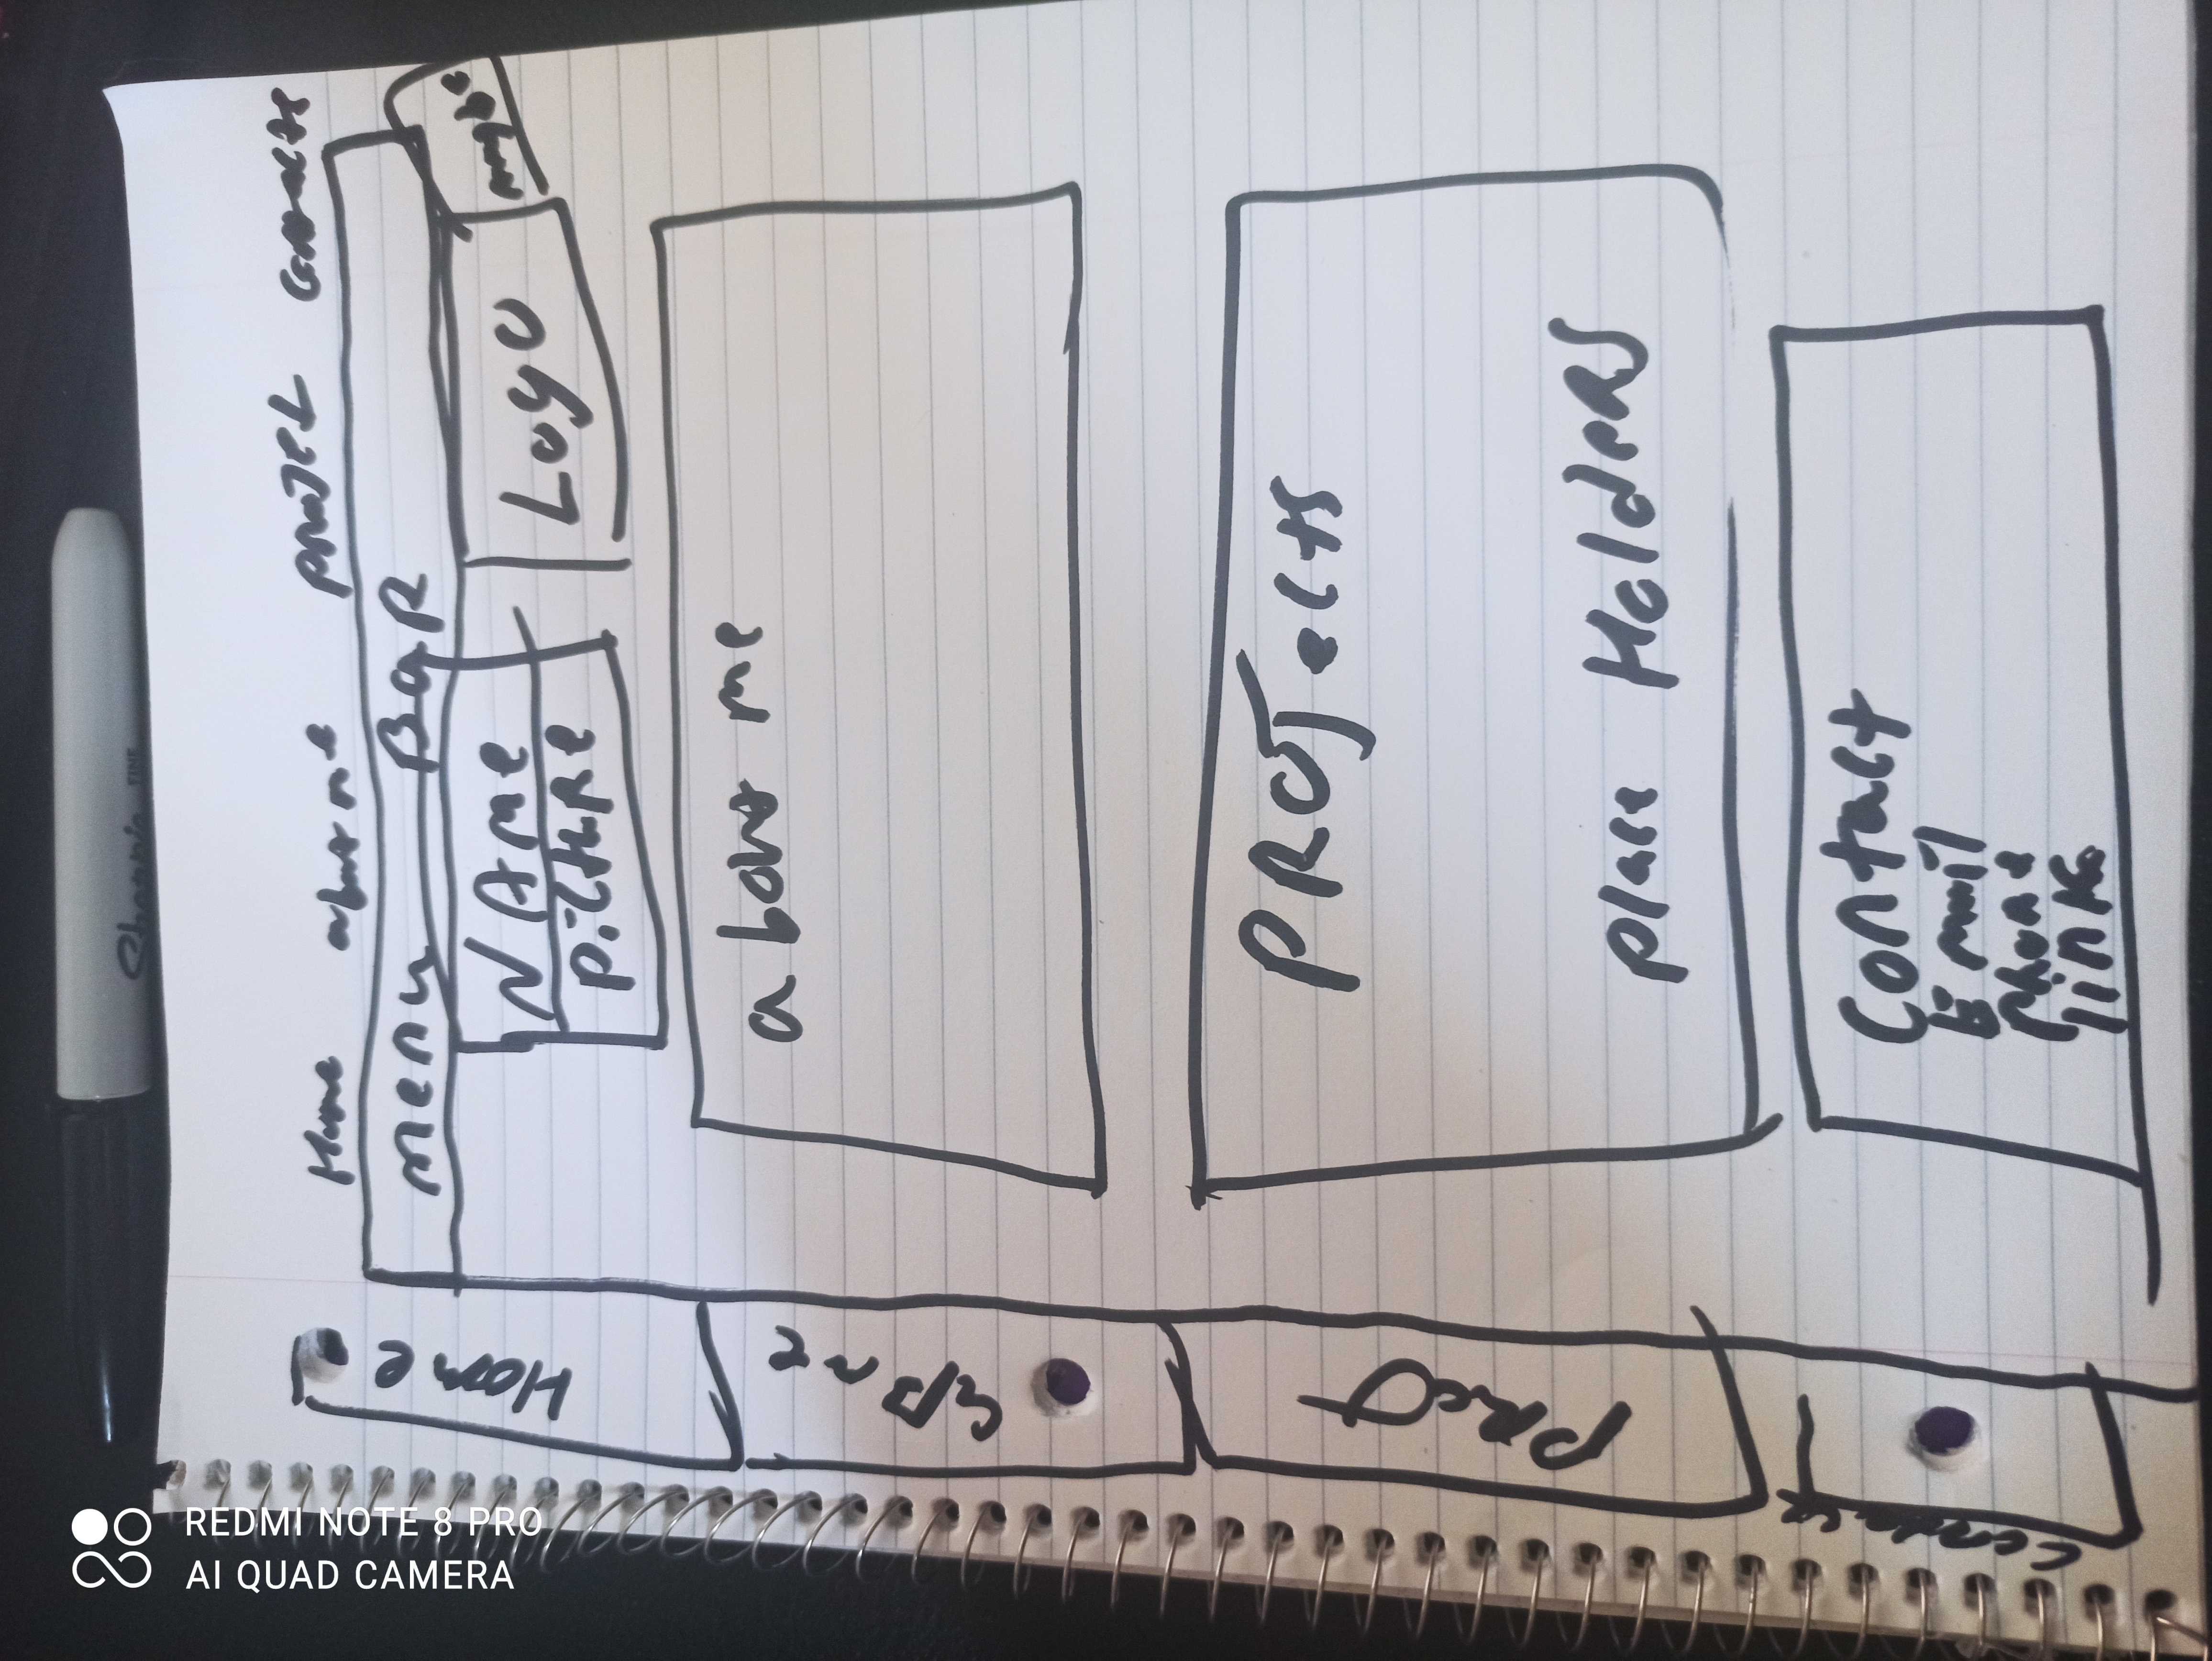 Home about me project contacts
menu Bar
NAme
picture
Logo
maybe
about me
PROJects
place HoldeRS
Contact
Email
Phone
links
Home
PROJ
contact
Sharpie
FINE
REDMI NOTE 8 PRO
AI QUAD CAMERA